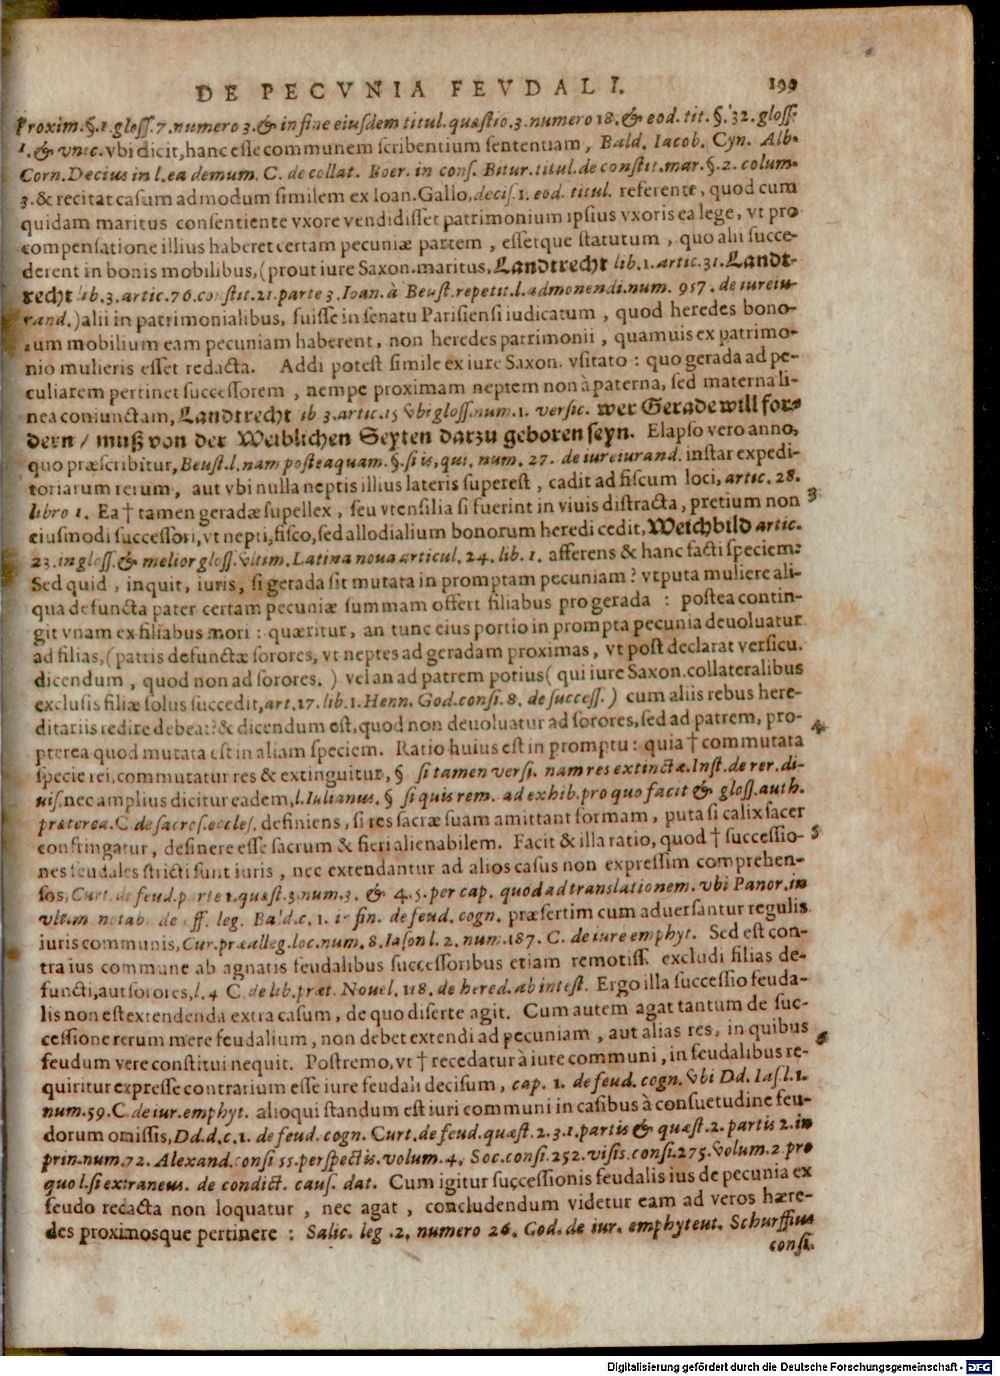 DE PECVNIA FEVDALI. 199
Proxim.§.1.gloss.7.numero 3.& in fine eiusdem titul.quæstio.3.numero 18.& eod.tit.§.32.gloss.
1.& vnic.vbi dicit,hanc esse communem scribentium sententiam, Bald. Iacob. Cyn. Alb.
Corn.Decius in l.ea demum. C. de collat. Boer. in cons. Bitur.titul.de constit.mar.§.2.colum-
3.& recitat casum admodum similem ex Ioan.Gallo,decis.1.eod. titul. referente, quod cum
quidam maritus consentiente vxore vendidisset patrimonium ipsius vxoris ea lege, vt pro
compensatione illius haberet certam pecuniæ partem , essetque statutum , quo alii succe-
derent in bonis mobilibus,(prout iure Saxon.maritus,Landtrecht lib.1.artic.31.Landt-
recht lib.3.artic.76.constit.21.parte 3.Ioan.à Beust.repetit.l.admonendi.num. 957. de iureiu-
rand.)alii in patrimonialibus, fuisse in senatu Parisiensi iudicatum , quod heredes bono-
rum mobilium eam pecuniam haberent, non heredes patrimonii , quamuis ex patrimo-
nio mulieris esset redacta. Addi potest simile ex iure Saxon. vsitato : quo gerada ad pe-
culiarem pertinet successorem , nempe proximam neptem non à paterna, sed materna li-
nea coniunctam, Landtrecht lib 3.artic.15 vbi gloss.num.1. versic. wer Gerade will for-
dern / muß von der Weiblichen Seyten darzu geboren seyn. Elapso vero anno,
quo præscribitur,Beust.l.nam posteaquam.§.si is,qui. num. 27. de iureiurand. instar expedi-
toriarum rerum , aut vbi nulla neptis illius lateris superest , cadit ad fiscum loci, artic. 28.
libro 1. Ea † tamen geradæ supellex , seu vtensilia si fuerint in viuis distracta, pretium non 3
eiusmodi successori,vt nepti,fisco,sed allodialium bonorum heredi cedit, Weichbild artic.
23.in gloss.& melior gloss.vltim.Latina noua articul. 24. lib. 1. afferens & hanc facti speciem:
Sed quid , inquit, iuris, si gerada sit mutata in promptam pecuniam? vtputa muliere ali-
qua defuncta pater certam pecuniæ summam offert filiabus pro gerada : postea contin-
git vnam ex filiabus mori : quæritur, an tunc eius portio in prompta pecunia deuoluatur
ad filias,(patris defunctæ sorores, vt neptes ad geradam proximas, vt post declarat versicu.
dicendum , quod non ad sorores. ) vel an ad patrem potius ( qui iure Saxon.collateralibus
exclusis filiæ solus succedit,art.17.lib.1.Henn. God.consi.8. de success. ) cum aliis rebus here-
ditariis redire debeat?& dicendum est,quod non deuoluatur ad sorores,sed ad patrem, pro- 4
pterea quod mutata est in aliam speciem. Ratio huius est in promptu : quia † commutata
specie rei,commutatur res & extinguitur, § si tamen versi. nam res extinctæ.Inst.de rer.di-
uis.nec amplius dicitur eadem,l.Iulianus. § si quis rem. ad exhib.pro quo facit & gloss.auth.
præterea.C de sacros.eccles. definiens, si res sacræ suam amittant formam, puta si calix sacer
confringatur, desinere esse sacrum & fieri alienabilem. Facit & illa ratio, quod † successio- 5
nes feudales stricti sunt iuris , nec extendantur ad alios casus non expressim comprehen-
sos,Curt.de feud.parte 1.quæst.3.num.3. & 4.5.per cap. quod ad translationem.vbi Panor.in
vltim notab. de off. leg. Bald.c. 1. in fin. de feud. cogn. præsertim cum aduersantur regulis
iuris communis, Cur.præalleg.loc.num. 8.Iason l. 2. num.187. C. de iure emphyt. Sed est con-
tra ius commune ab agnatis feudalibus successoribus etiam remotiss. excludi filias de-
functi,aut sorores,l.4 C de lib.præt. Nouel. 118. de hered.ab intest. Ergo illa successio feuda-
lis non est extendenda extra casum , de quo diserte agit. Cum autem agat tantum de suc-
cessione rerum mere feudalium , non debet extendi ad pecuniam , aut alias res, in quibus 6
feudum vere constitui nequit. Postremo,vt † recedatur à iure communi , in feudalibus re-
quiritur expresse contrarium esse iure feudali decisum , cap. 1. de feud. cogn.vbi Dd. Ias.l.1.
num.59.C.de iur.emphyt. alioqui standum est iuri communi in casibus à consuetudine feu-
dorum omissis, Dd.d.c.1. de feud. cogn. Curt.de feud.quæst.2.3.1.partis & quæst.2.partis 2.in
prin.num.72. Alexand.consi 55.perspectis.volum.4. Soc.consi.252.visis.consi.275.volum.2 pro
quo l.si extraneus. de condict. caus. dat. Cum igitur successionis feudalis ius de pecunia ex
feudo redacta non loquatur , nec agat , concludendum videtur eam ad veros hære-
des proximosque pertinere : Salic. leg .2. numero 26. Cod. de iur. emphyteut. Schurffius
consi.
Digitalisierung gefördert durch die Deutsche Forschungsgemeinschaft - DFG